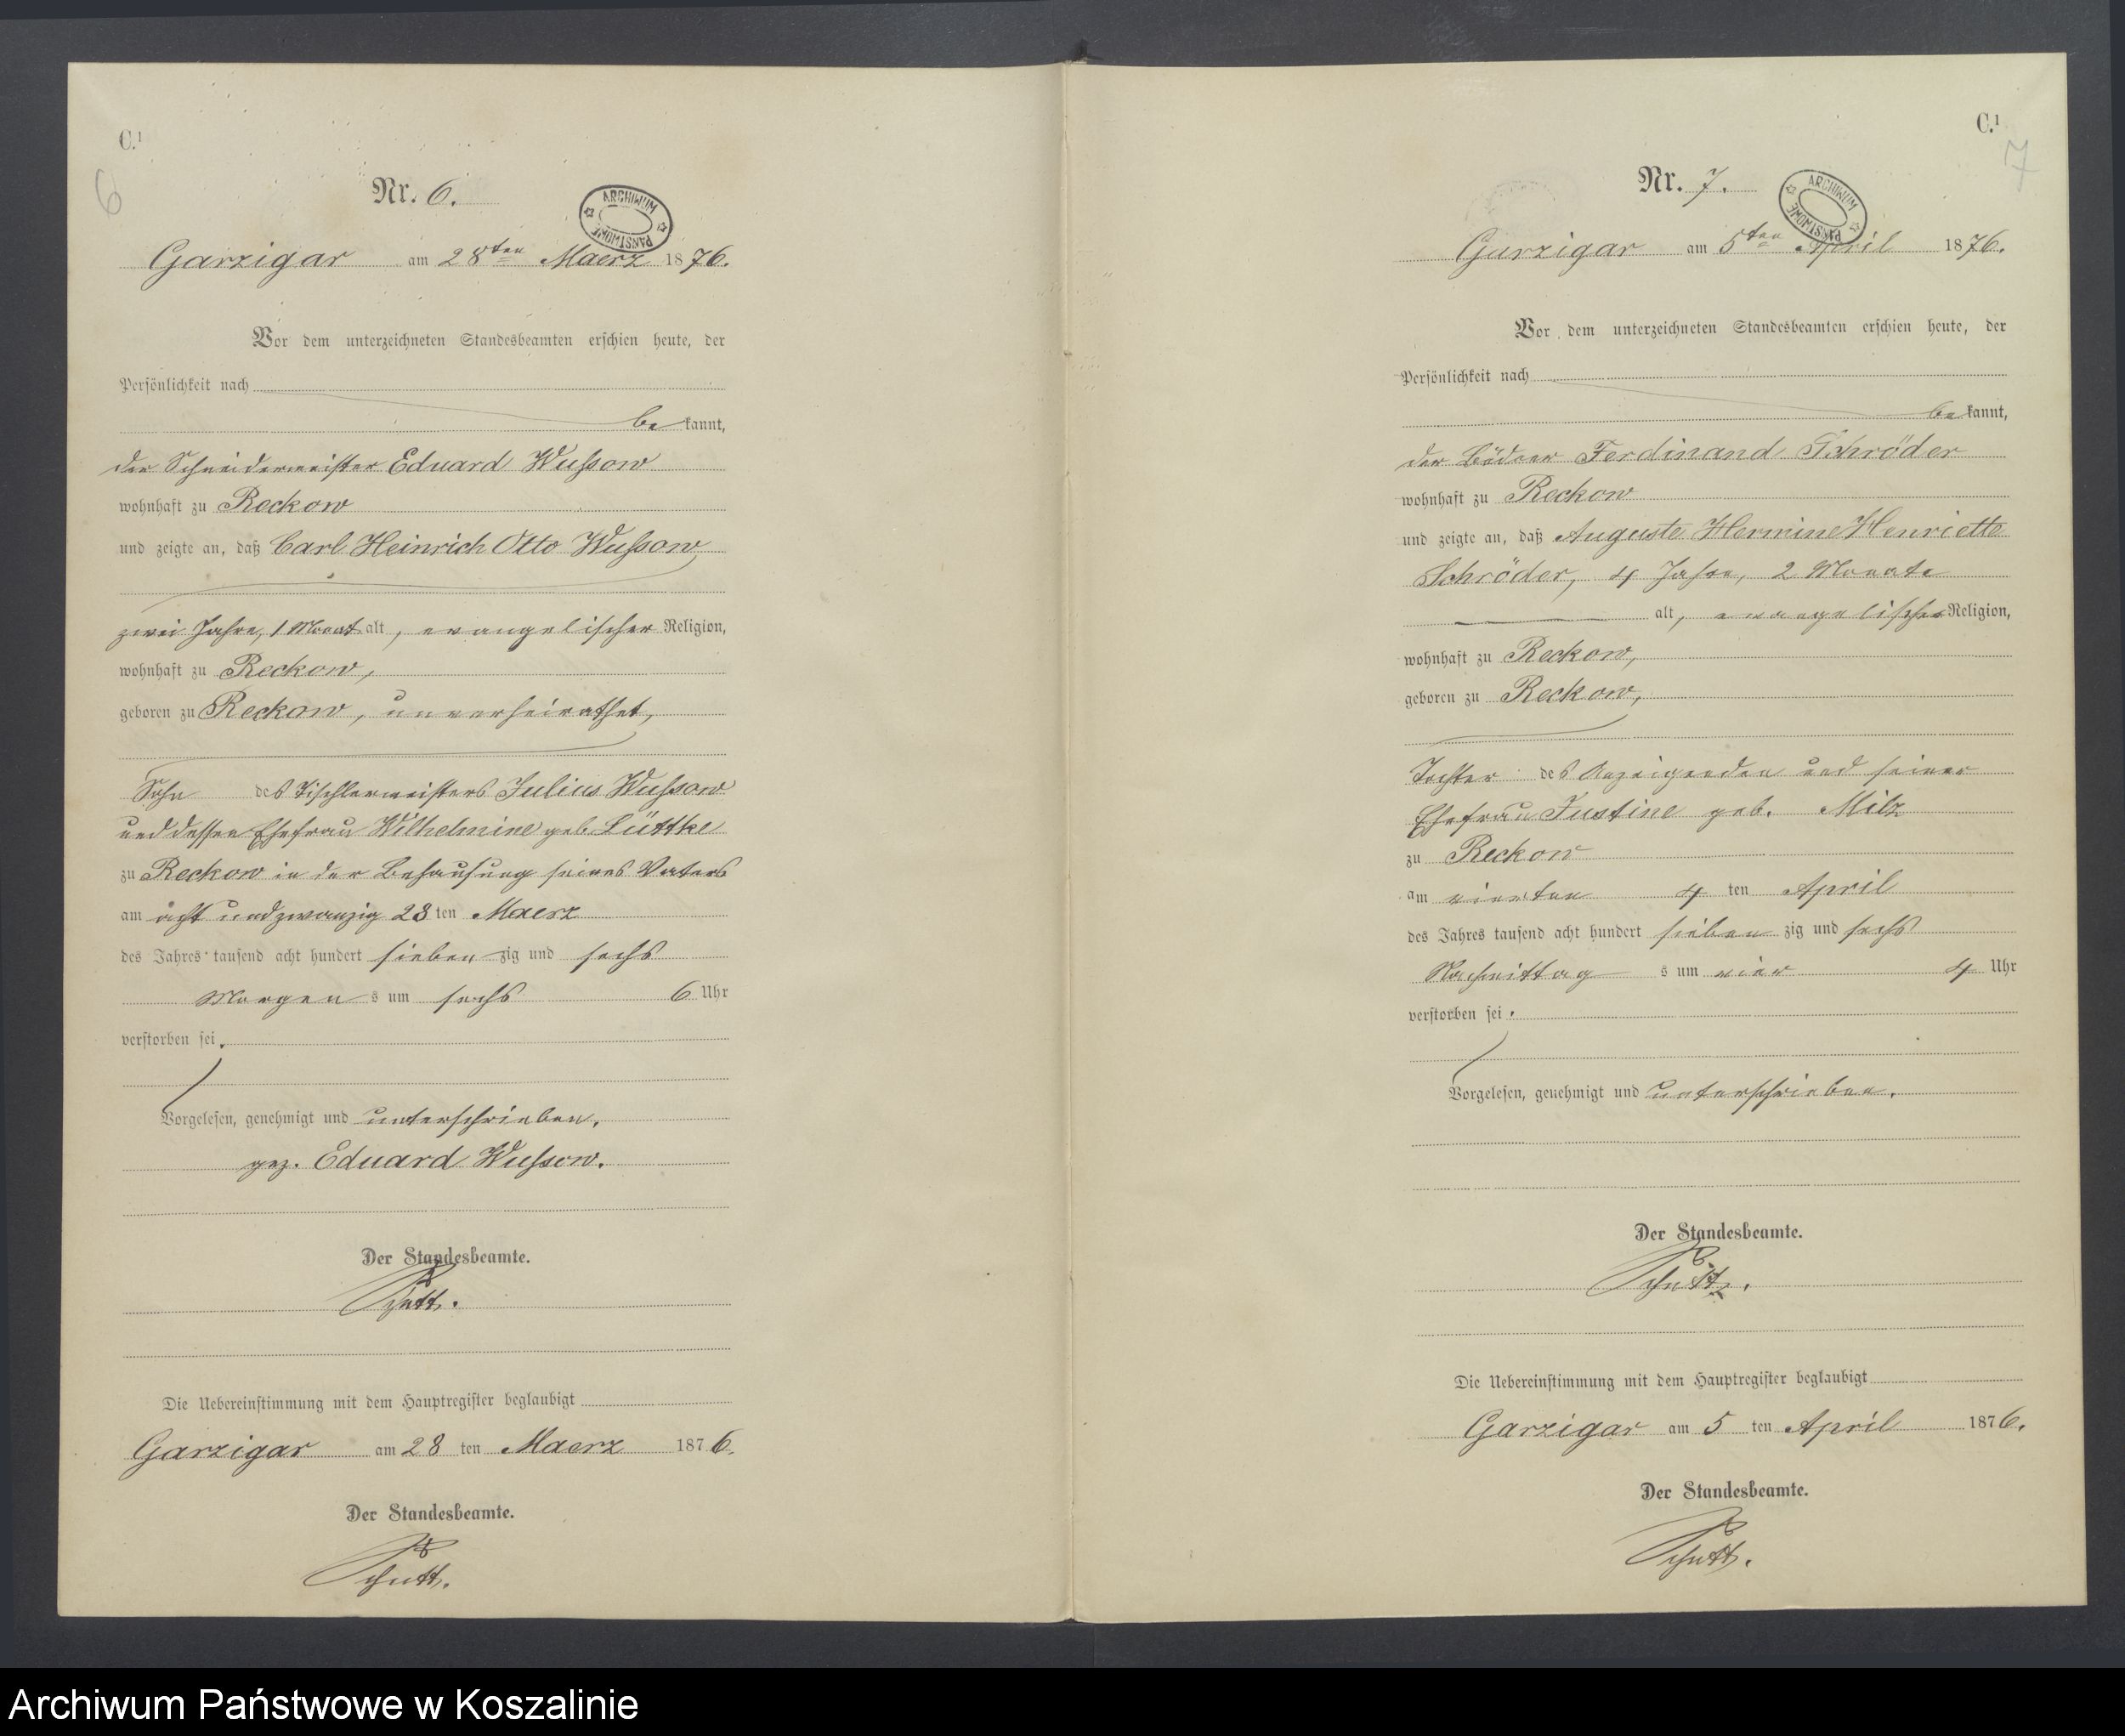 C.¹
6
Nr. 6.
ARCHIWUM PAŃSTWOWE
Garzigar am 28ten Maerz 1876.
Vor dem unterzeichneten Standesbeamten erschien heute, der
Persönlichkeit nach
bekannt,
der Schneidermeister Eduard Wussow
wohnhaft zu Reckow
und zeigte an, daß Carl Heinrich Otto Wussow
zwei Jahre, 1 Monat alt, evangelischer Religion,
wohnhaft zu Reckow,
geboren zu Reckow, unverheirathet,
Sohn des Tischlermeisters Julius Wussow
und dessen Ehefrau Wilhelmine geb. Lüttke
zu Reckow in der Behausung seines Vaters
am acht und zwanzig 28 ten Maerz
des Jahres tausend acht hundert siebenzig und sechs
Morgens um sechs 6 Uhr
verstorben sei.
Vorgelesen, genehmigt und unterschrieben.
gez. Eduard Wussow.
Der Standesbeamte.
Schütt.
Die Uebereinstimmung mit dem Hauptregister beglaubigt
Garzigar am 28 ten Maerz 1876.
Der Standesbeamte.
Schütt.
C.¹
7
Nr. 7.
ARCHIWUM PAŃSTWOWE
Garzigar am 5ten April 1876.
Vor dem unterzeichneten Standesbeamten erschien heute, der
Persönlichkeit nach
bekannt,
der Büdner Ferdinand Schröder
wohnhaft zu Reckow
und zeigte an, daß Auguste Hermine Henriette
Schröder, 4 Jahre, 2 Monate
alt, evangelischer Religion,
wohnhaft zu Reckow,
geboren zu Reckow,
Tochter des Anzeigenden und seiner
Ehefrau Justine geb. Milz
zu Reckow
am vierten 4 ten April
des Jahres tausend acht hundert siebenzig und sechs
Nachmittags um vier 4 Uhr
verstorben sei.
Vorgelesen, genehmigt und unterschrieben.
Der Standesbeamte.
Schütt.
Die Uebereinstimmung mit dem Hauptregister beglaubigt
Garzigar am 5 ten April 1876.
Der Standesbeamte.
Schütt.
Archiwum Państwowe w Koszalinie